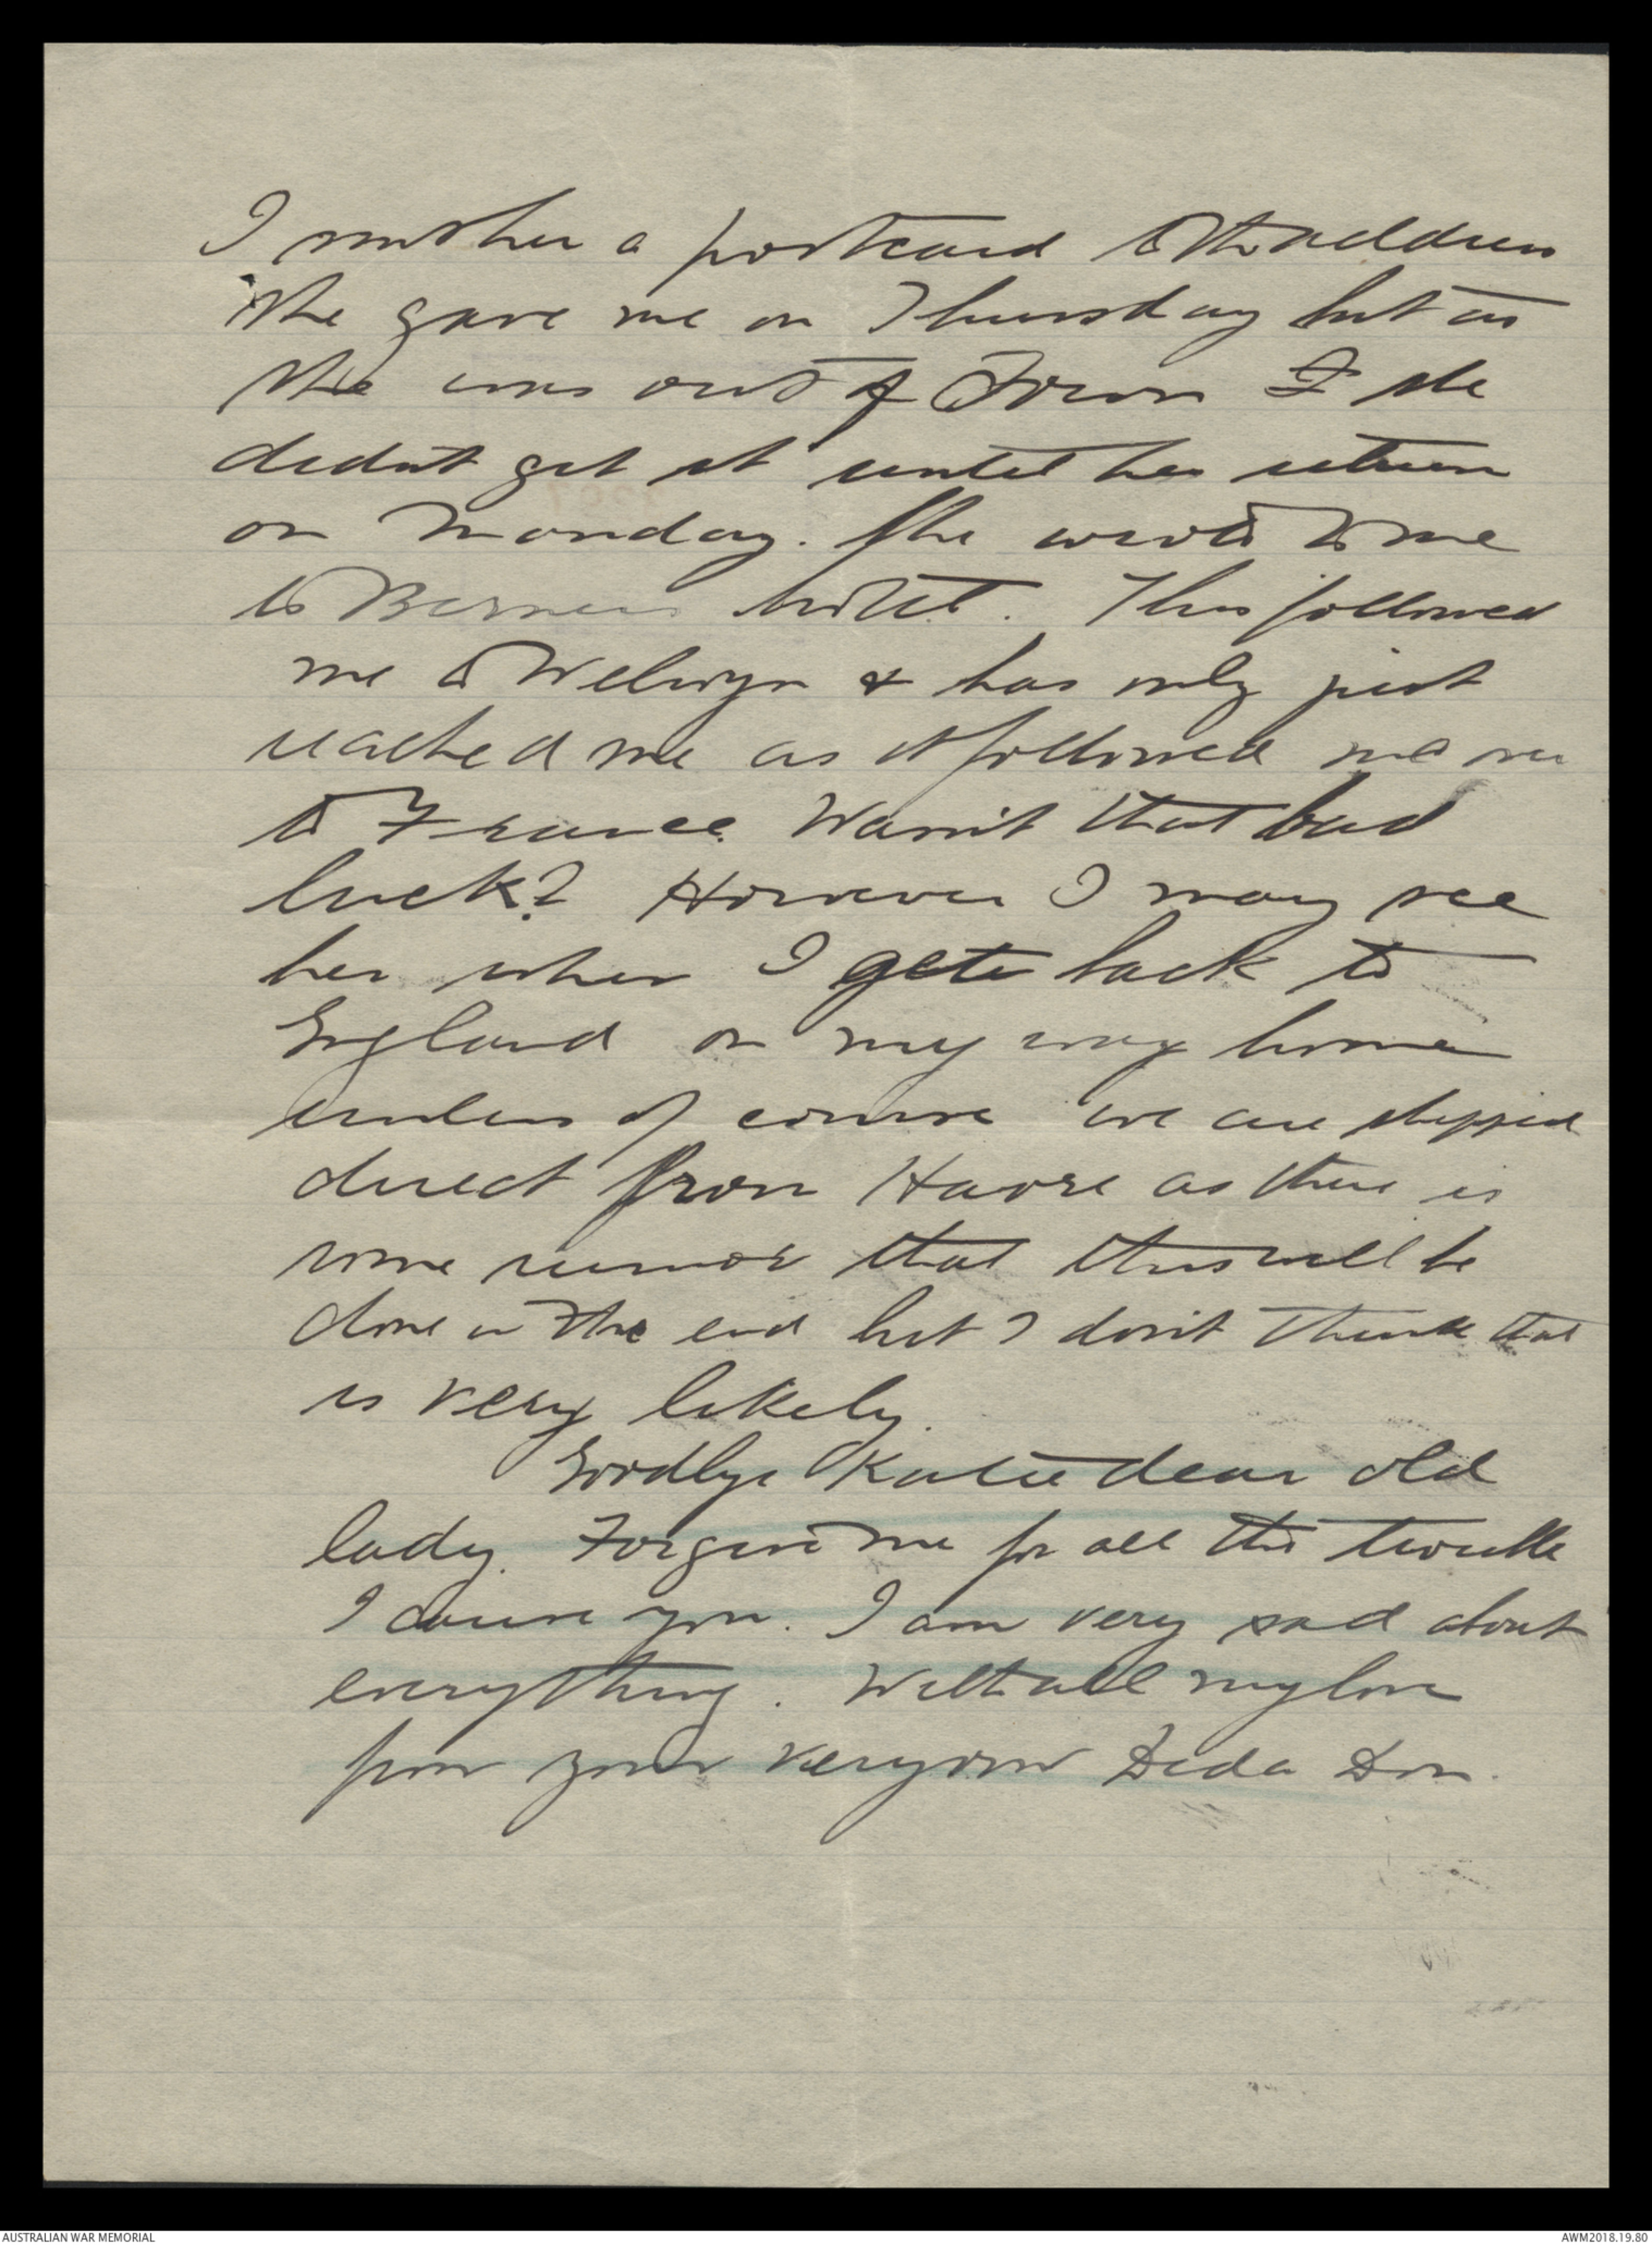 I sent her a postcard to the address
she gave me on Thursday but as
she was out of Town I she
didn't get it until her return
on Monday. She wrote to me
to Berners hotel. This followed
me to Welwyn & has only just
reached me as it followed me over
to France. Wasn't that bad
luck? However I may see
her when I gets back to
England on my way home
unless of course we are shipped
direct from Havre as there is
some rumor that this will be
done in the end but I don't think that
is very likely.
Goodbye Katie dear old
lady. Forgive me for all the trouble
I cause you. I am very sad about
everything. With all my love
from your very own Dida Don.
AUSTRALIAN WAR MEMORIAL
AWM2018.19.80